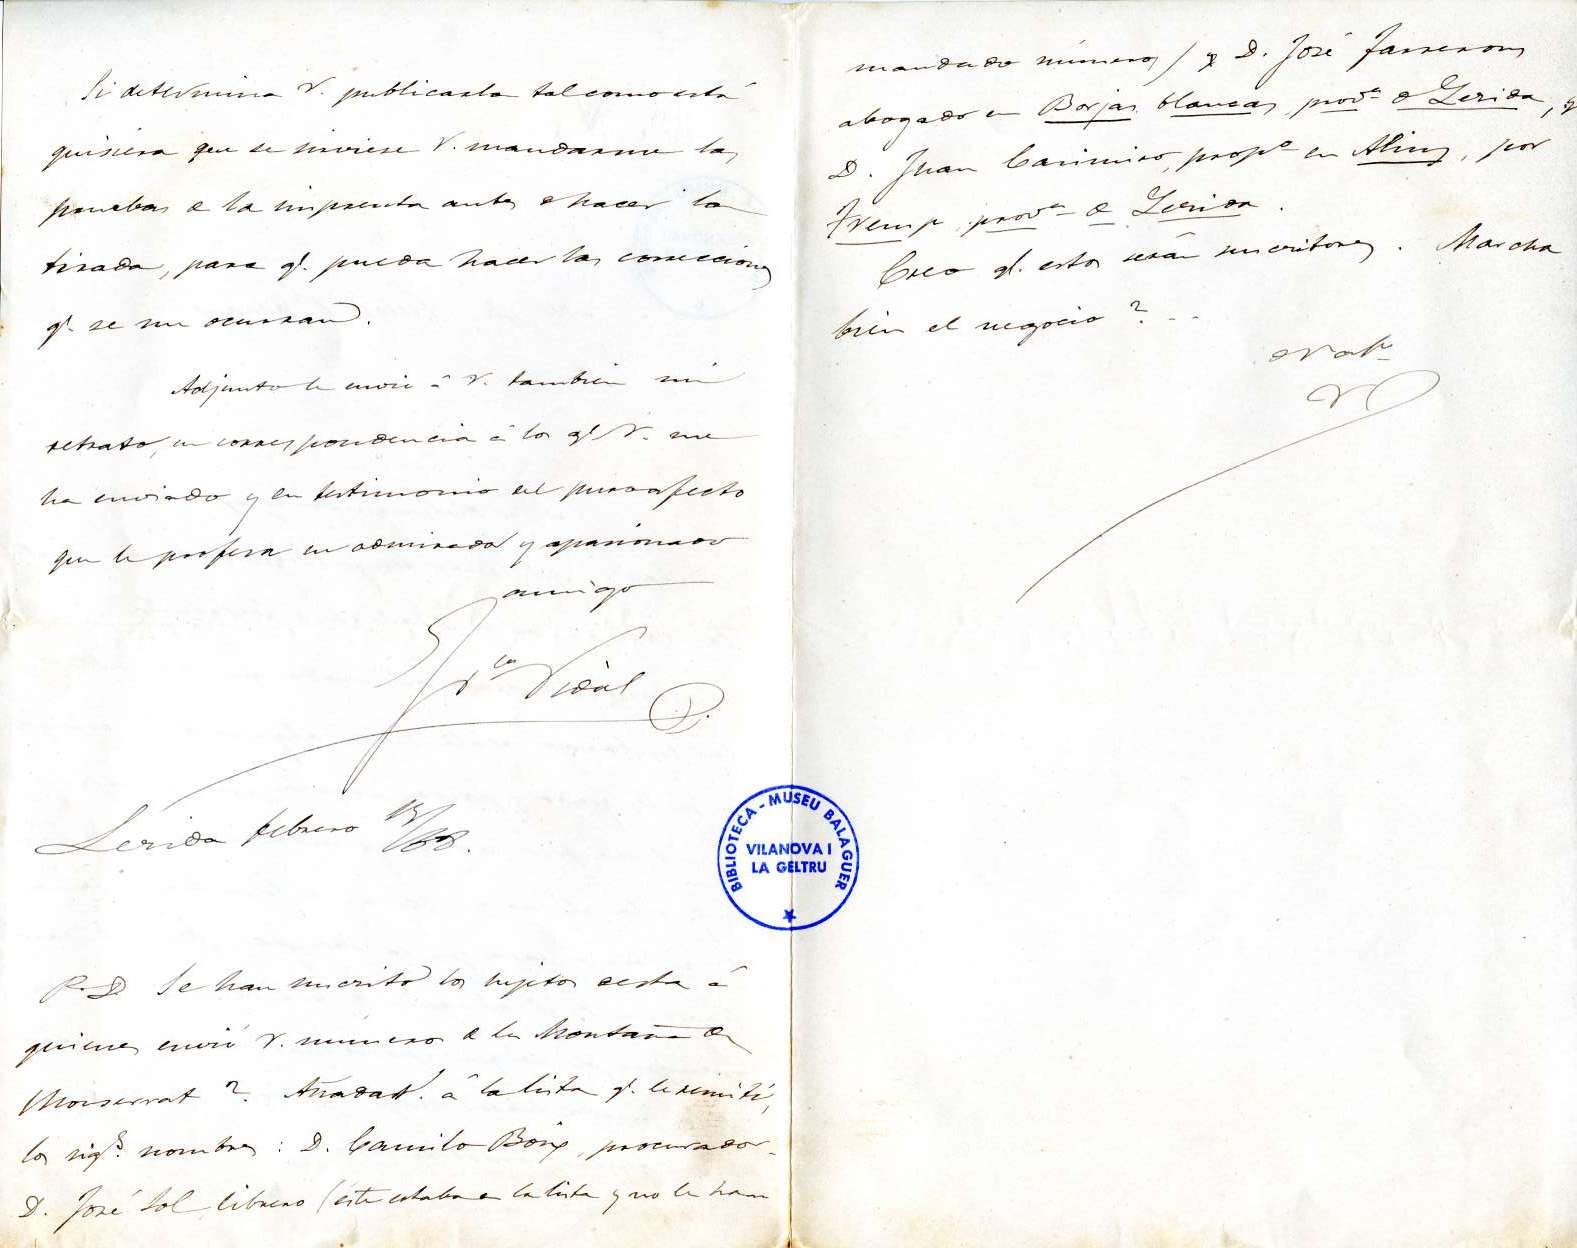 Si determina V. publicarla tal como está
quisiera que se sirviese V. mandarme las
pruebas de la imprenta antes de hacer la
tirada, para q. pueda hacer las correcciones
q. se me ocurran.
Adjunto le envio á V. tambien mi
retrato, en correspondencia á los q. V. me
ha enviado y en testimonio del puro afecto
que le profesa su admirador y apasionado
amigo
Fr.co Vidal
Lérida febrero /68.
P. D. Se han suscrito los sujetos de esta á
quienes envió V. número de la Montaña de
Monserrat? Añada V. á la lista q. le remití,
los sig.s nombres: D. Camilo Boix, procurador-
D. José Sol librero (éste estaba en la lista y no le han
mandado números) y D. José Farrerons
abogado en Borjas blancas, prov.a de Lerida, y
D. Juan Casimiro, prop.o en , por
Tremp, prov.a de Lerida.
Creo q. estos serán suscritores. Marcha
bien el negocio?...
V
BIBLIOTECA - MUSEU BALAGUER
VILANOVA I
LA GELTRU